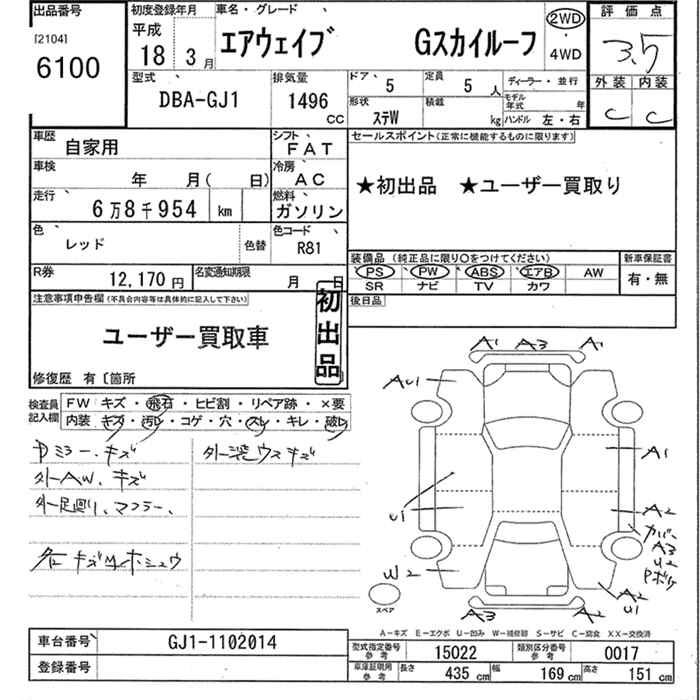 出品番号
[2104]
6100
初度登録年月
平成
18年 3月
車名・グレード
エアウェイブ Gスカイルーフ
2WD
・
4WD
評価点
3.5
外装 内装
C C
型式
DBA-GJ1
排気量
1496
CC
ドア 5
定員 5 人
形状 ステW
積載 kg
ディーラー・並行
モデル年式 年
ハンドル 左・右
車歴 自家用
シフト FAT
車検 年 月( 日)
冷房 AC
走行 6万8千954 km
燃料 ガソリン
色 レッド 色替
色コード R81
R券 12,170円
名変通知期限 月 日
セールスポイント(正常に機能するものに限ります)
★初出品 ★ユーザー買取り
装備品 (純正品に限り○をつけてください)
PS PW ABS エアB AW
SR ナビ TV カワ
新車保証書
有・無
後日品
注意事項申告欄(不具合内容等は具体的に記入して下さい)
ユーザー買取車
初出品
修復歴 有〔箇所
検査員記入欄
FW キズ・飛石・ヒビ割・リペア跡・×要
内装・キズ・汚レ・コゲ・穴・スレ・キレ・破レ
Pミラー、キズ
外AW、キズ
外足廻り、マフラー、
各キズ
外装ウスキズ
A1 A3 A1
AU1
A1
U1
A2
カバー
A3
U2
Pボケ
W2
A2
U1
A3
A2
スペア
A-キズ E-エクボ U-凹み W-補修跡 S-サビ C-腐食 XX-交換済
車台番号 GJ1-1102014
登録番号
型式指定番号 参考 15022
類別区分番号 参考 0017
車庫証明用 参考 長さ 435 cm 幅 169 cm 高さ 151 cm